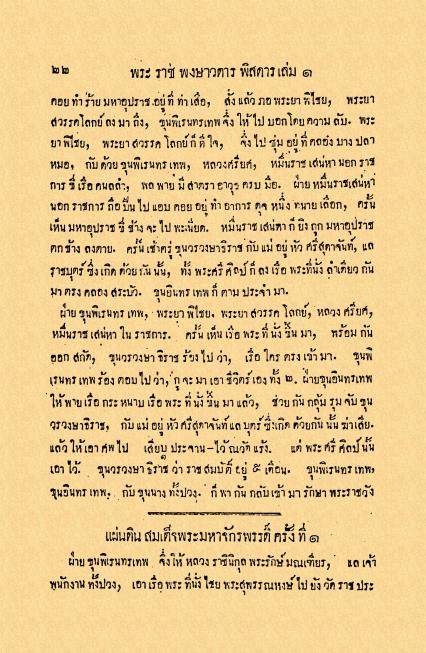 ๒๒ พระ ราช พงษาวดาร พิสดาร เล่ม ๑
คอย ทำ ร้าย มหาอุปราช อยู่ ที่ ท่า เสือ, สั่ง แล้ว ภอ พระยา พิไชย, พระยา
สวรรคโลกย์ ลง มา ถึง, ขุนพิเรนทรเทพ จึ่ง ให้ ไป บอก โดย ความ ลับ. พระ
ยา พิไชย, พระยา สวรรค โลกย์ ก็ ดี ใจ, จึ่ง ไป ซุ่ม อยู่ ที่ คลอง บาง ปลา
หมอ, กับ ด้วย ขุนพิเรนทร เทพ, หลวงศรียศ, หมื่นราช เสน่หา นอก ราช
การ ขี่ เรือ คนลลำ, พล พาย มี สาตรา อาวุธ ครบ มือ. ฝ่าย หมื่นราชเสน่หา
นอก ราชการ ถือ ปืน ไป แอบ คอย อยู่ ทำ อาการ ดุจ หนึ่ง ทนาย เลือก, ครั้น
เห็น มหาอุปราช ขี่ ช้าง จะ ไป พะเนียด. หมื่นราช เสน่หา ก็ ยิง ถูก มหาอุปราช
ตก ช้าง ลง ตาย. ครั้น เช้าตรู่ ขุนวรวงษาธิราช กับ แม่ อยู่ หัว ศรีสุดาจันท์, แล
ราชบุตร์ ซึ่ง เกิด ด้วย กัน นั้น, ทั้ง พระศรี ศิลป์ ก็ ลง เรือ พระที่นั่ง ลำเดียว กัน
มา ตรง คลอง สระบัว. ขุนอินทร เทพ ก็ ตาม ประจำ มา.
ฝ่าย ขุนพิเรนทร เทพ, พระยา พิไชย. พระยา สวรรค โลกย์, หลวง ศรียศ,
หมื่นราช เสน่หา ใน ราชการ. ครั้น เห็น เรือ พระ ที่ นั่ง ขึ้น มา, พร้อม กัน
ออก สกัด, ขุนวรวงษา ธิราช ร้อง ไป ว่า, เรือ ใคร ตรง เข้า มา. ขุนพิ
เรนทร เทพ ร้อง ตอบ ไป ว่า, กู จะ มา เอา ชีวิตร์ เอง ทั้ง ๒. ฝ่าย ขุนอินทรเทพ
ให้ พาย เรือ กระ หนาบ เรือ พระ ที่ นั่ง ขึ้น มา แล้ว, ช่วย กัน กลุ้ม รุม จับ ขุน
วรวงษาธิราช, กับ แม่ อยู่ หัว ศรีสุดาจันท์ แล บุตร์ ซึ่งเกิด ด้วยกัน นั้น ฆ่าเสีย.
แล้ว ให้ เอา ศพ ไป เสียบ ประจาน ไว้ ณวัด แร้ง. แต่ พระ ศรี ศิลป์ นั้น
เอา ไว้. ขุนวรวงษา ธิราช ว่า ราช สมบัติ์ อยู่ ๕ เดือน. ขุนพิเรนทร เทพ,
ขุนอินทร เทพ, กับ ขุนนาง ทั้งปวง. ก็ พา กัน กลับ เข้า มา รักษา พระราชวัง
แผ่นดิน สมเด็จพระมหาจักรพรรดิ์ ครั้ง ที่ ๑
ฝ่าย ขุนพิเรนทรเทพ จึ่ง ให้ หลวง ราชินิกูล พระรักษ์ มณเฑียร, แล เจ้า
พนักงาน ทั้งปวง, เอา เรือ พระ ที่นั่ง ไชย พระสุพรรณหงษ์ ไป ยัง วัด ราช ประ